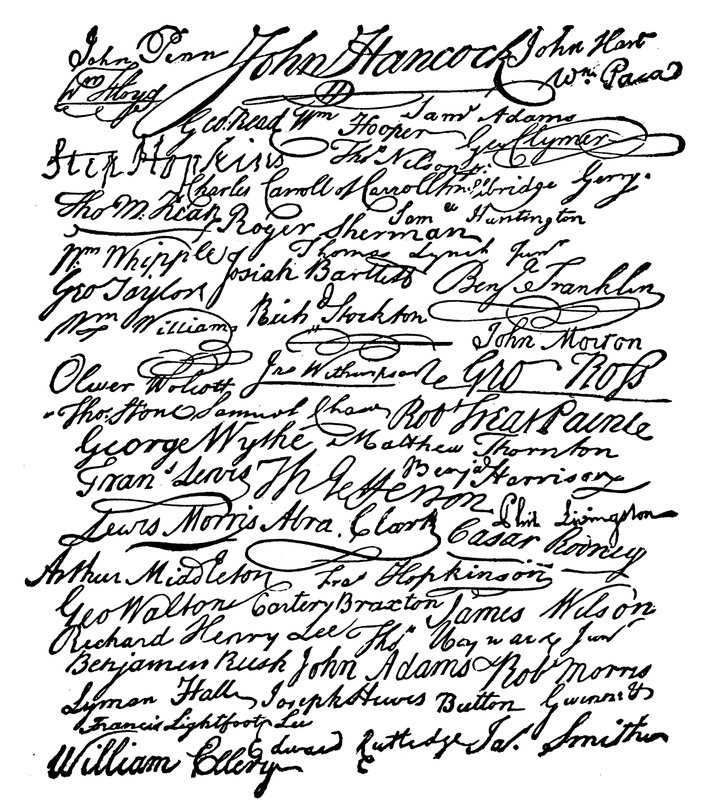 John Penn John Hancock John Hart
Wm Floyd Wm Paca
Geo. Read Wm Hooper Saml Adams Geo Clymer
Step Hopkins Thos Nelson jr
Charles Carroll of Carrollton Elbridge Gerry.
Tho M. Kean Roger Sherman Saml Huntington
Wm Whipple Josiah Bartlett Thomas Lynch Junr
Geo Taylor Benj Franklin
Wm Williams Richd Stockton John Morton
Oliver Wolcott Jno Witherspoon Geo Ross
Thos. Stone Samuel Chase Robt Treat Paine
George Wythe Matthew Thornton
Frans Lewis Th Jefferson Benja Harrison
Lewis Morris Abra. Clark Phil. Livingston
Casar Rodney
Arthur Middleton Fras Hopkinson
Geo Walton Carter Braxton James Wilson
Richard Henry Lee Thos Heyward Junr
Benjamin Rush John Adams Robt Morris
Lyman Hall Joseph Hewes Button Gwinnett
Francis Lightfoot Lee
William Ellery Edward Rutledge Jas. Smith